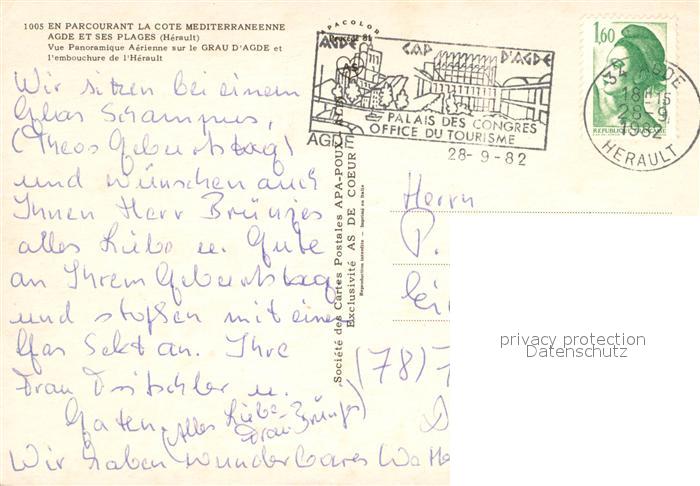 1005 EN PARCOURANT LA COTE MEDITERRANEENNE
AGDE ET SES PLAGES (Hérault)
Vue Panoramique Aérienne sur le GRAU D'AGDE et
l'embouchure de l'Hérault
Wir sitzen bei einem
Glas Schampus,
(Theos Geburtstag)
und wünschen auch
Ihnen Herr Brünjes
alles Liebe u. Gute
an Ihrem Geburtstag
und stoßen mit einem
Glas Sekt an. Ihre
Frau Dritschler u.
Gatten. (Alles Liebe-
Frau Brünjes)
Wir haben wunderbares
Société des Cartes Postales APA-POUX
Exclusivité AS DE COEUR
Reproduction interdite - Imprimé en Italie
AGDE
CAP
D'AGDE
PALAIS DES CONGRES
OFFICE DU TOURISME
28-9-82
1,60
REPUBLIQUE FRANÇAISE
34 AGDE
18H15
28-9
1982
HERAULT
Herrn
P.
(78)
privacy protection
Datenschutz